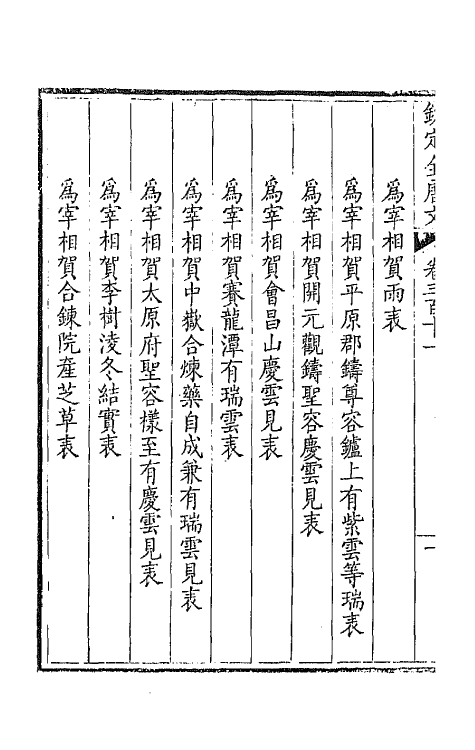 欽定全唐文
卷三百十一
一
為宰相賀雨表
為宰相賀平原郡鑄尊容鑪上有紫雲等瑞表
為宰相賀開元觀鑄聖容慶雲見表
為宰相賀會昌山慶雲見表
為宰相賀賽龍潭有瑞雲表
為宰相賀中嶽合煉藥自成兼有瑞雲見表
為宰相賀太原府聖容樣至有慶雲見表
為宰相賀李樹淩冬結實表
為宰相賀合鍊院產芝草表